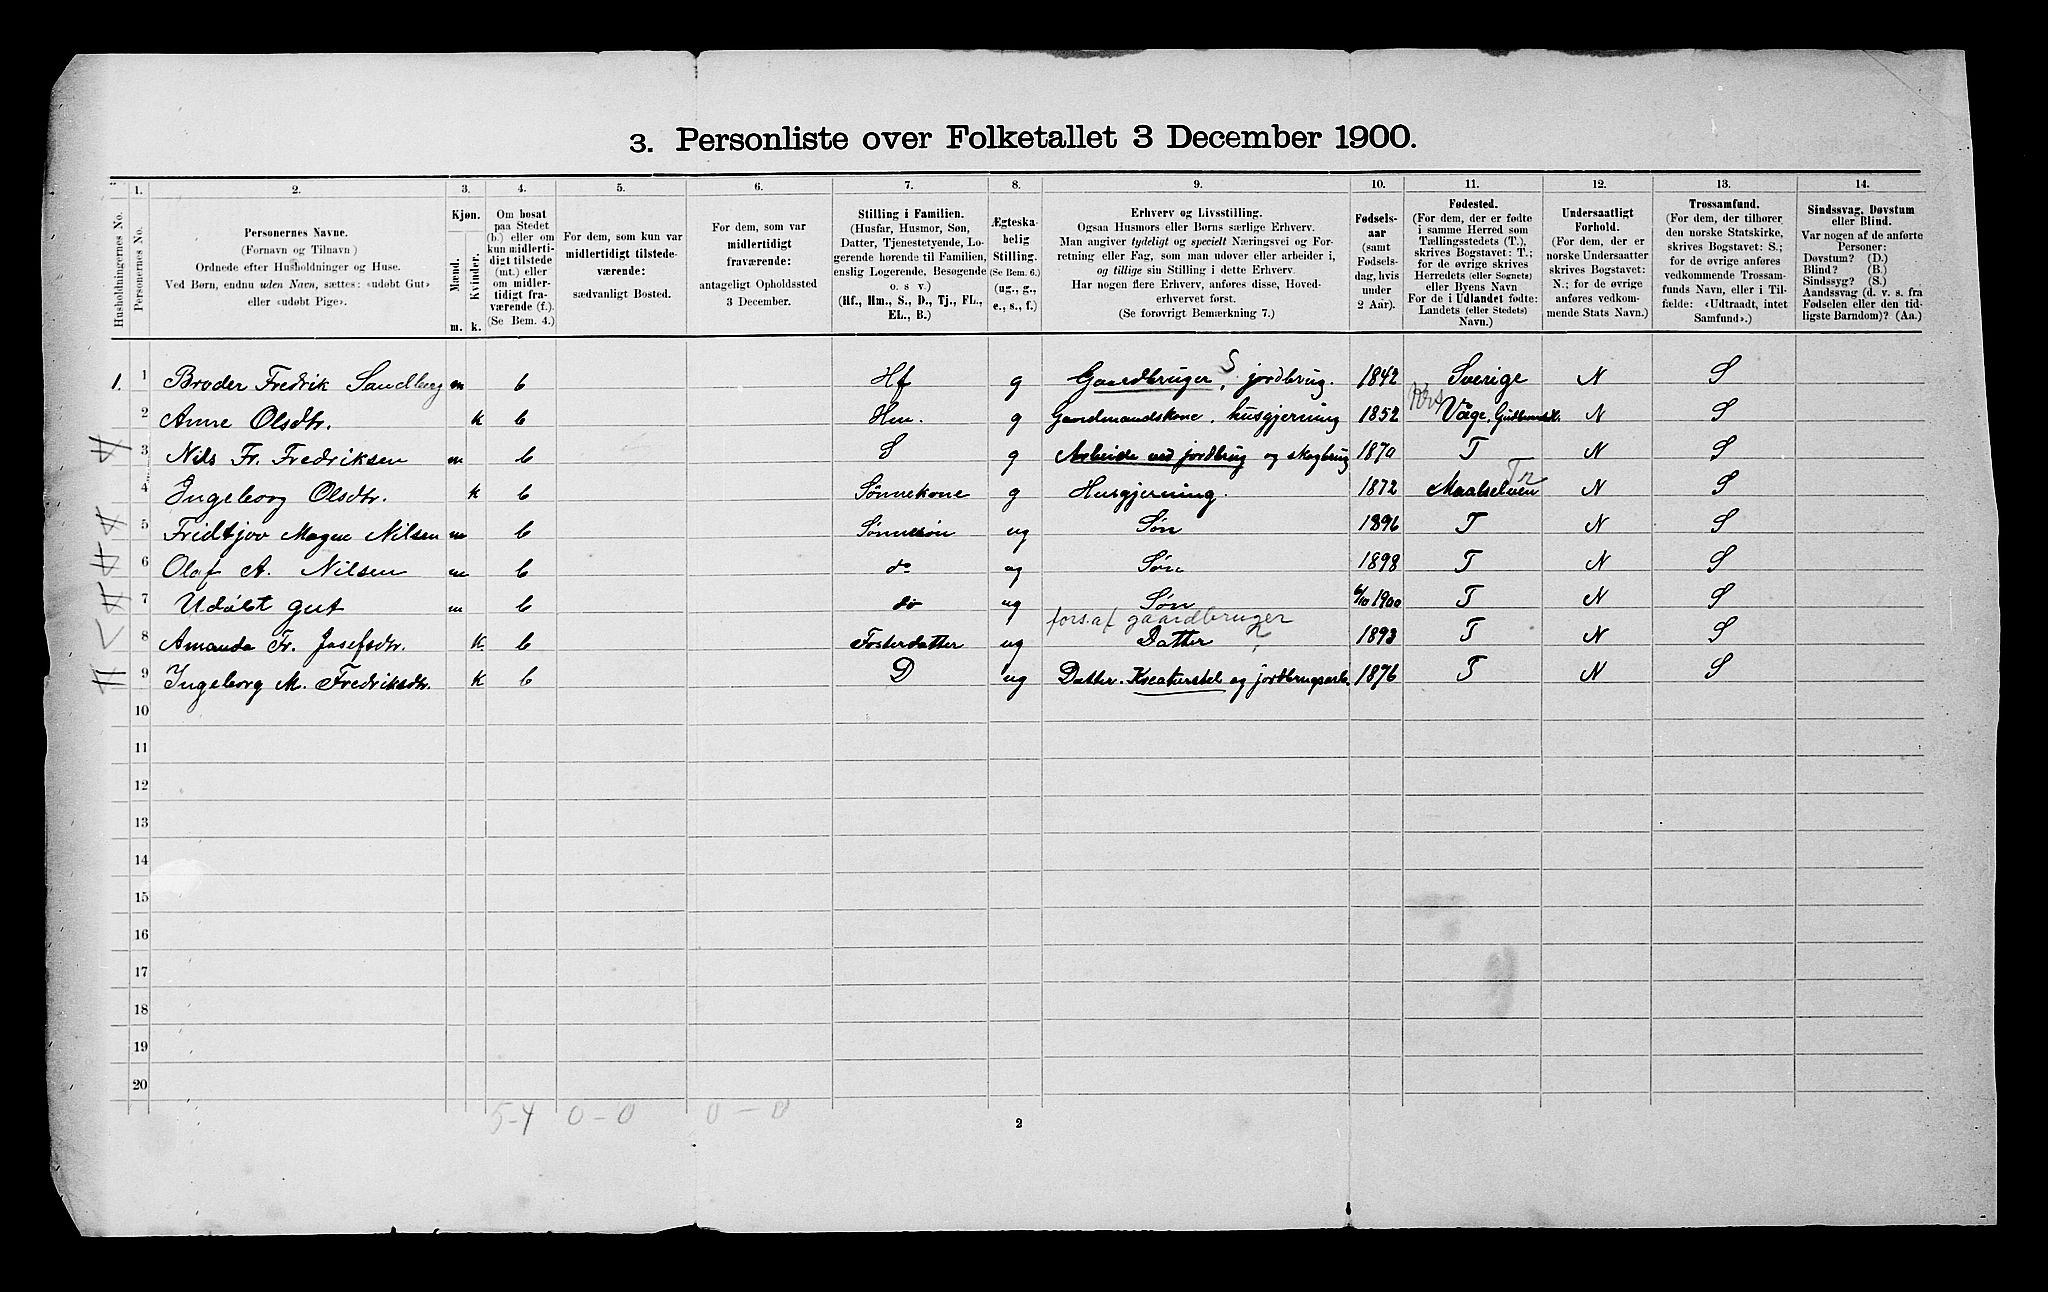 3. Personliste over Folketallet 3 December 1900.
1. 2. 3. 4. 5. 6. 7. 8. 9. 10. 11. 12. 13. 14.
Husholdningernes No.
Personernes No.
Personernes Navne.
(Fornavn og Tilnavn)
Ordnede efter Husholdninger og Huse.
Ved Børn, endnu uden Navn, sættes: «udøbt Gut»
eller «udøbt Pige».
Kjøn.
Mænd.
Kvinder.
m. k.
Om bosat
paa Stedet
(b.) eller om
kun midlerti-
digt tilstede
(mt.) eller
om midler-
tidigt fra-
værende (f.).
(Se Bem. 4.)
For dem, som kun var
midlertidigt tilstede-
værende:
sædvanligt Bosted.
For dem, som var
midlertidigt
fraværende:
antageligt Opholdssted
3 December.
Stilling i Familien.
(Husfar, Husmor, Søn,
Datter, Tjenestetyende, Lo-
gerende hørende til Familien,
enslig Logerende, Besøgende
o. s v.)
(Hf., Hm., S., D., Tj., FL.,
EL., B.)
Ægteska-
belig
Stilling.
(Se Bem. 6.)
(ug., g.,
e., s., f.)
Erhverv og Livsstilling.
Ogsaa Husmors eller Børns særlige Erhverv.
Man angiver tydeligt og specielt Næringsvei og For-
retning eller Fag, som man udover eller arbeider i,
og tillige sin Stilling i dette Erhverv.
Har nogen flere Erhverv, anføres disse, Hoved-
erhvervet først.
(Se forøvrigt Bemærkning 7.)
Fødsels-
aar
(samt
Fødsels-
dag, hvis
under
2 Aar).
Fødested.
(For dem, der er fødte
i samme Herred som
Tællingsstedets (T.),
skrives Bogstavet: T.;
for de øvrige skrives
Herredets (eller Sognets)
eller Byens Navn
For de i Udlandet fødte:
Landets (eller Stedets)
Navn.)
Undersaatligt
Forhold.
(For dem, der er
norske Undersaatter
skrives Bogstavet:
N.; for de øvrige
anføres vedkom-
mende Stats Navn.)
Trossamfund.
(For dem, der tilhører
den norske Statskirke,
skrives Bogstavet: S.;
for de øvrige anføres
vedkommende Trossam-
funds Navn, eller i Til-
fælde: «Udtraadt, intet
Samfund».)
Sindssvag, Døvstum
eller Blind.
Var nogen af de anførte
Personer:
Døvstum? (D.)
Blind? (B.)
Sindssyg? (S.)
Aandssvag (d. v. s. fra
Fødselen eller den tid-
ligste Barndom)? (Aa.)
1. 1 Broder Fredrik Sandberg m b Hf g Gaardbruger, S jordbrug. 1842 Sverige N S
2 Anne Olsdtr. k b Hm. g Gardmandskone, husgjerning 1852 Våge, Gudbrandsd. N S
3 Nils Fr. Fredriksen m b S g Arbeide ved jordbrug og skogbrug 1870 T N S
4 Ingeborg Olsdtr. k b Sønnekone g Husgjerning. 1872 Maalselven Tr N S
5 Fridtjov Magne Nilsen m b Sønnesøn ug Søn 1896 T N S
6 Olaf A. Nilsen m b do ug Søn 1898 T N S
7 Udøbt gut m b do ug Søn 6/10 1900 T N S
fors. af gaardbruger
8 Amanda Fr. Josefsdtr. k b Fosterdatter ug Datter 1893 T N S
9 Ingeborg M. Fredriksdtr. k b D ug Datter. Kreaturstel og jordbrugsarb. 1876 T N S
10
11
12
13
14
15
16
17
18
19
20
5-4 0-0 0-0
2